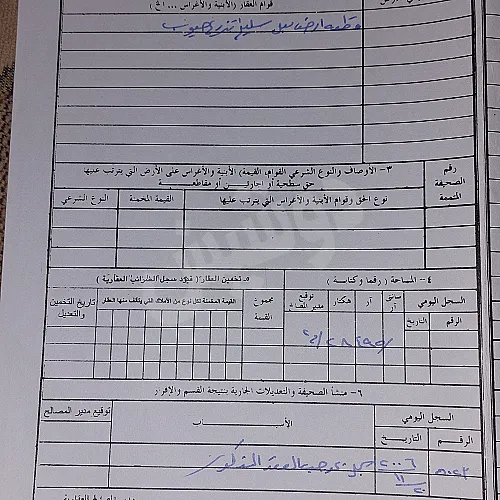 قوام العقار (الأبنية والأغراس ... الخ)
قطعة ارض بعل سليخ
٣- الأوصاف والنوع الشرعي القوام، القيمة) الأبنية والأغراس على الأرض التي يترتب عليها
حق سطحية أو اجارتين أو مقاطعة
رقم الصحيفة المتممة
نوع الحق وقوام الأبنية والأغراس التي يترتب عليها
القيمة المخمنة
النوع الشرعي
٤- المساحة (رقما وكتابة)
٥- تخمين العقار (قيود سجل الضرائب العقارية)
السجل اليومي
الرقم
التاريخ
سانتي آر
آر
هكتار
توقيع مدير المصالح
مجموع القسمة
القيمة المقدمة لكل نوع من الأملاك التي يتألف منها العقار
تاريخ التخمين والتعديل
٦- منشأ الصحيفة والتعديلات الجارية بنتيجة القسم والافراز
السجل اليومي
الرقم
التاريخ
الأسباب
توقيع مدير المصالح
٢٠٠٦
١١
٢٠
سجل بموجب العقد المذكور